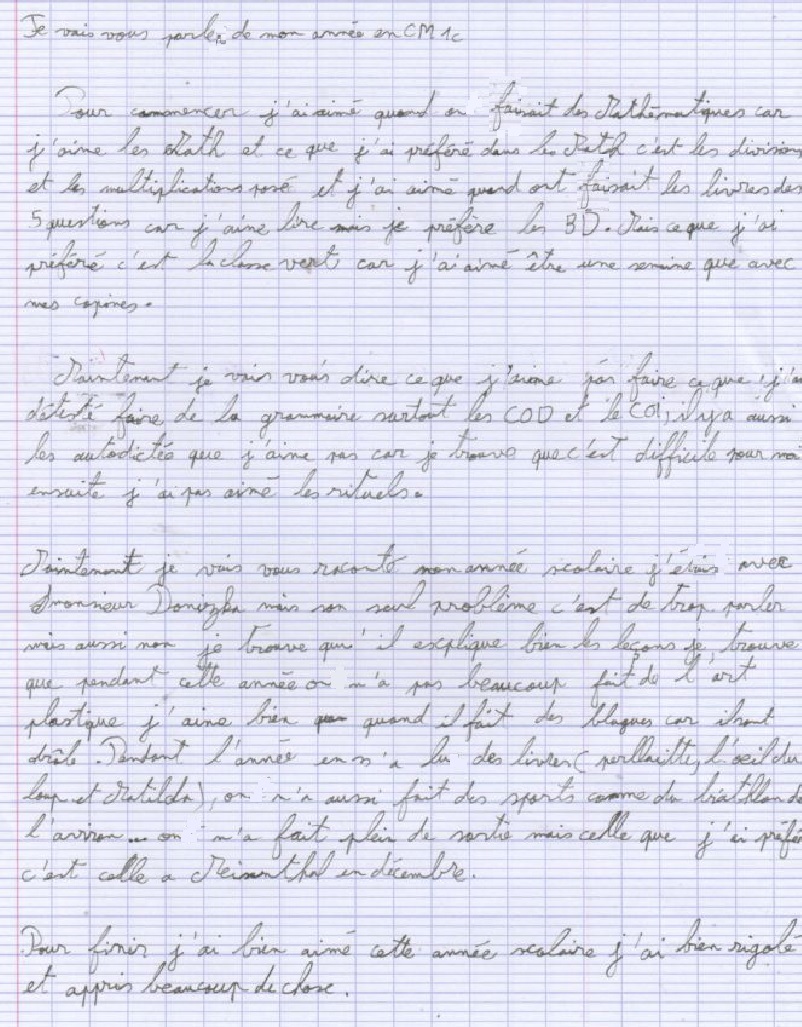 Je vais vous parler de mon année en CM1c
Pour commencer j'ai aimé quand on faisait des Mathématiques car
j'aime les Math et ce que j'ai préféré dans les Math c'est les divisions
et les multiplications posé et j'ai aimé quand ont faisait les livres des
5 questions car j'aime lire mais je préfère les BD. Mais ce que j'ai
préféré c'est la classe vert car j'ai aimé être une semaine que avec
mes copines.
Maintenant je vais vous dire ce que j'aime pas faire ce que j'ai
détesté faire de la grammaire surtout les COD et le COI, il y a aussi
les autodictée que j'aime pas car je trouve que c'est difficile pour moi
ensuite j'ai pas aimé les rituels.
Maintenant je vais vous raconté mon année scolaire j'étais avec
monsieur mais son seul problème c'est de trop parler
mais aussi non je trouve qu'il explique bien les leçons je trouve
que pendant cette année on n'a pas beaucoup fait de l'art
plastique j'aime bien quand il fait des blagues car
drôle. Pendant l'année en n'a lu des livres ( l'oeil du
loup et Matilda), on n'a aussi fait des sports comme du biathlon de
l'aviron... on n'a fait plein de sortie mais celle que j'ai préféré
c'est celle a Meisenthal en décembre.
Pour finir j'ai bien aimé cette année scolaire j'ai bien rigolé
et appris beaucoup de chose.